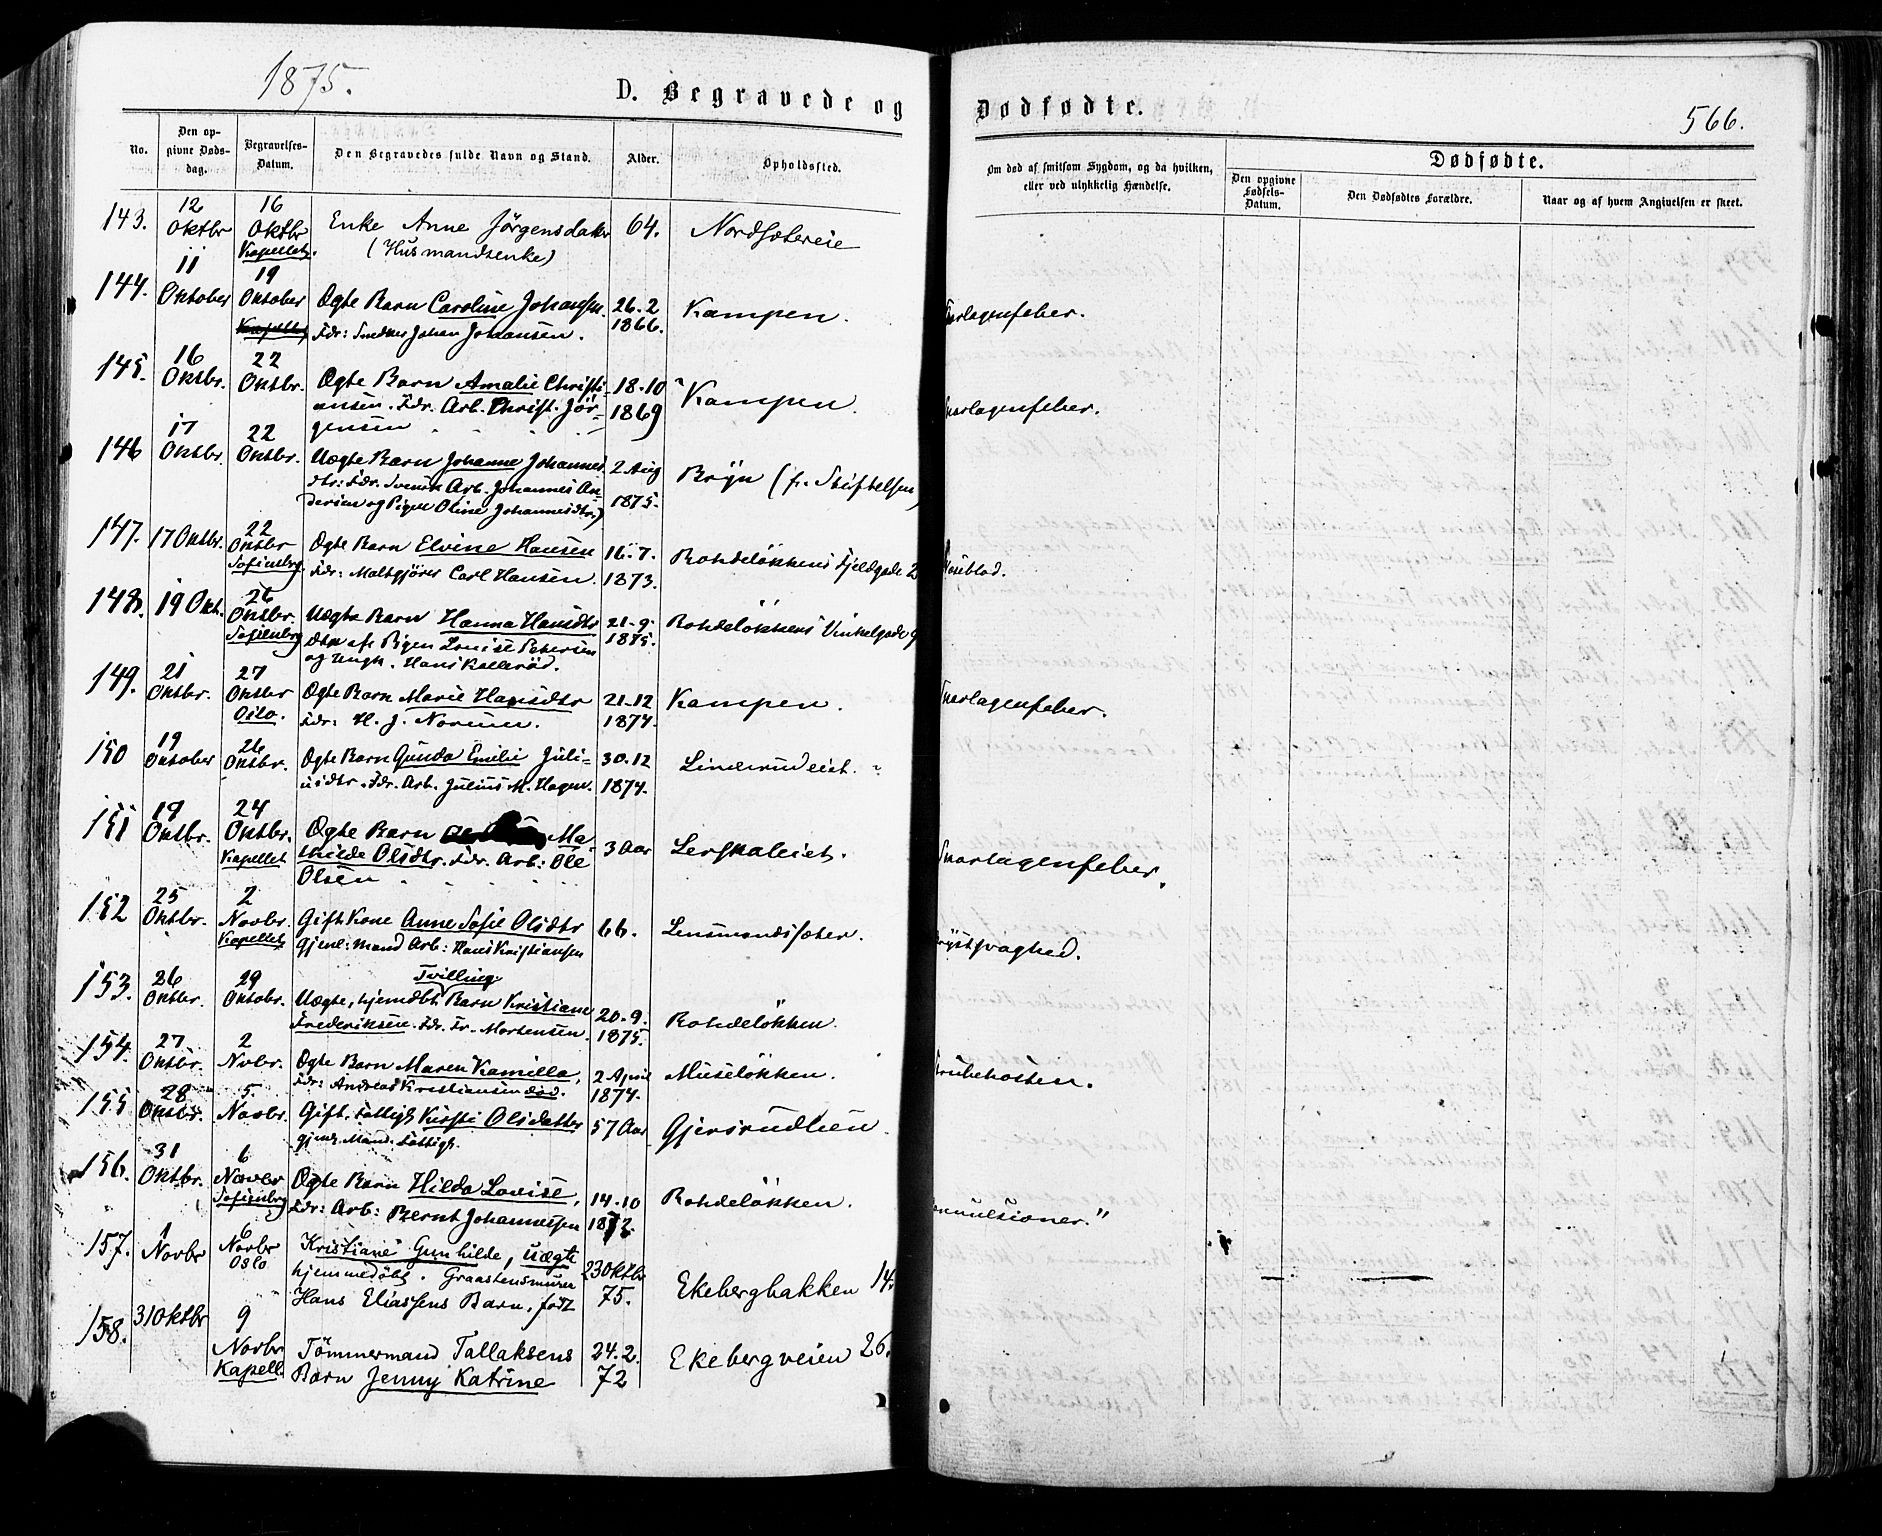 1875.
D. Begravede og
Dødfødte.
566.
No.
Den op-
givne Døds-
dag.
Begravelses-
Datum.
Den Begravedes fulde Navn og Stand.
Alder.
Opholdssted.
Om død af smitsom Sygdom, og da hvilken,
eller ved ulykkelig Hændelse.
Dødfødte.
Den opgivne
Fødsels-
Datum.
Den Dødfødtes Forældre.
Naar og af hvem Angivelsen er skeet.
143. 12 Oktbr 16 Oktbr Kapellet. Enke Anne Jörgensdatter 64. Nordsætereie
(Husmandsenke)
144. 11 Oktober 19 Oktober Kapellet Ægte Barn Caroline Johansen. 26-2 1866. Kampen.
Fdr: Snedker Johan Johansen.
arlagenfeber.
145. 16 Oktbr. 22 Oktbr. Ægte Barn Amalie Christi- 18-10 1869 Kampen.
ansen. Fdr. Arb. Christ. Jör-
gensen
arlagenfeber.
146 17 Oktbr. 22 Oktbr. Uægte Barn Johanne Johannes 2 Aug 1875. Bryn (fr. Stiftelsen)
dtr: Fdr. Svensk Arb. Johannes An-
dersen og Pigen Oline Johannesdtr.)
147. 17 Oktbr. 22 Oktbr Sofienbrg. Ægte Barn Elvine Hansen 16-7. 1873. Rohdelökkens Fjeldgade 2
Fdr: Maltgjörer Carl Hansen.
148. 19 Okt. 26 Oktbr. Sofienbrg Uægte Barn Hanna Hansdtr 21-9. 1875. Rohdelökkens Vinkelgade 9
af Pigen Lovise Petersen
og Ungk. Hans
149. 21 Oktbr. 27 Oktbr Oslo. Ægte Barn Marie Hansdtr 21-12 1874. Kampen.
Fdr: H. J.
arlagenfeber.
150 19 Oktober 26 Oktbr. Ægte Barn Gunda Emilie Juli- 30.12 1874. Linderudeiet.
usdtr. Fdr. Arb. Julius M. Hagen.
151 19 Oktbr. 24 Oktbr. Kapellet Ægte Barn Ma- 3 Aar Lerskaleiet.
thilde Olsdtr. Fdr. Arb: Ole
Olsen
arlagenfeber.
152 25 Oktbr. 2 Novbr. Kapellet Gift Kone Anne Sofie Olsdtr 66. Lensmandssæter.
gjenl: Mand Arb: Hans Kristiansen
rystsvaghed.
153. 26 Oktbr. 29 Oktobr. Tvilling
Uægte, hjemdbt Barn Kristiane 20-9. 1875. Rohdelökken.
Frederiksen. Fdr. Fr. Mortensen.
154. 27 Oktbr. 2 Novbr. Ægte Barn Maren Kamilla, 2 April 1874. Museløkken.
Fdr: Andreas Kristiansen död.
155 28 Oktbr. 5. Novbr. Gift. Fattigl. Kirsti Olsdatter 57 Aar Gjersrudlien.
gjenl. Mand. Fattigl.
156. 31 Oktbr. 6 Novbr Sofienbrg Ægte Barn Hilda Lovise, 14-10 1872. Rohdelökken.
Fdr: Arb: Bernt Johannessen
nvulsioner."
157. 1 Novbr 6 Novbr Oslo Kristiane Gunhilde, uægte 23 Oktbr 75. Ekebergbakken 14.
hjemmedöbt. Graastensmurer
Hans Eliassens Barn, født
158. 31 Oktbr 9 Novbr Kapell. Tömmermand Tallaksens 24.2. 72 Ekebergveien 26.
Barn Jenny Katrine